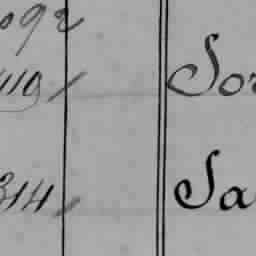 092
119 / Sor
314 / Sa